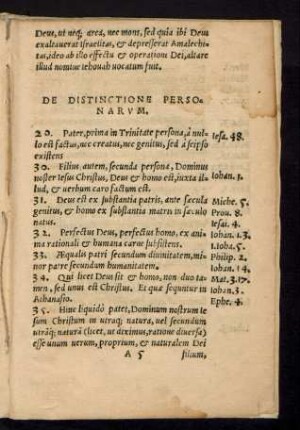 Deus, ut neq; area, nec mons, sed quia ibi Deus
exaltauerat Israelitas, & depresserat Amalechi-
tas, ideo ab illo effectu & operatiōe Dei, altare
illud nomine iehouah uocatum fuit.
DE DISTINCTIONE PERSO-
NARVM.
29. Pater, prima in Trinitate persona, à nul-
lo est factus, nec creatus, nec genitus, sed à seipso
existens
Iesa. 48.
30. Filius, autem, secunda persona, Dominus
noster Iesus Christus, Deus & homo est, iuxta il-
lud, & uerbum caro factum est.
Iohan. 1.
31. Deus est ex substantia patris, ante sæcula
genitus, & homo ex substantia matris in sæculo
natus.
Miche. 5.
Prou. 8.
Iesai. 4.
32. Perfectus Deus, perfectus homo, ex ani-
ma rationali & humana carne subsistens.
Iohan. 1.3.
1. Ioha. 5.
33. Æqualis patri secundum diuinitatem, mi-
nor patre secundum humanitatem.
Philip. 2.
Iohan. 1.
34. Qui licet Deus sit & homo, non duo ta-
men, sed unus est Christus. Et quæ sequuntur in
Athanasio.
Mat. 3.17.
Iohan. 3.
Ephe. 4.
35. Hinc liquidò patet, Dominum nostrum Ie
sum Christum in utraq; natura, uel secundum
utrāq; naturā (licet, ut diximus, ratione diuersa)
esse unum uerum, proprium, & naturalem Dei
A 5 filium,